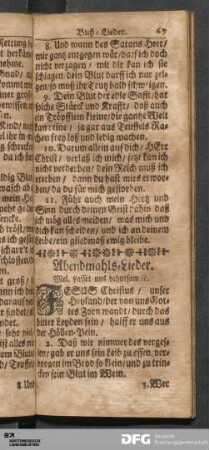 Buß-Lieder. 69
8. Und wann des Satans Heer/
mir gantz entgegen wår/ darf ich doch
nicht verzagen/ mit dir kan ich sie
schlagen dein Blut darff ich nur zei-
gen/ so muß ihr Trutz bald schweigen.
9. Dein Blut der edle Safft/ hat
solche Stårck und Krafft/ daß auch
ein Tröpfflein kleine/ die gantze Welt
kan reine/ ja gar aus Teuffels Ra-
chen frey loß und ledig machen.
10. Darum allein auf dich/ HErr
Christ/ verlaß ich mich/ jetzt kan ich
nicht verderben/ dein Reich muß ich
ererben/ dann du hast mirs erwor-
ben/ da du für mich gestorben.
11. Führ auch mein Hertz und
Sinn durch deinen Geist dahin/ daß
ich mög alles meiden/ was mich und
dich kan scheiden/ und ich an deinem
Leibe/ ein gliedmaß ewig bleibe.
Abendmahls-Lieder.
Mel. Lasset uns
JESUS Christus/ unser
Heyland/ der von uns Got-
tes Zorn wandt/ durch das
bitter Leyden sein/ halff er uns aus
der Höllen-Pein.
2. Daß wir nimmer des verges-
sen/ gab er uns sein Leib zu essen/ ver-
borgen im Brod so klein/ und zu trin-
cken sein Blut im Wein.
3. Wer
8. Und
DFG Deutsche
Forschungsgemeinschaft